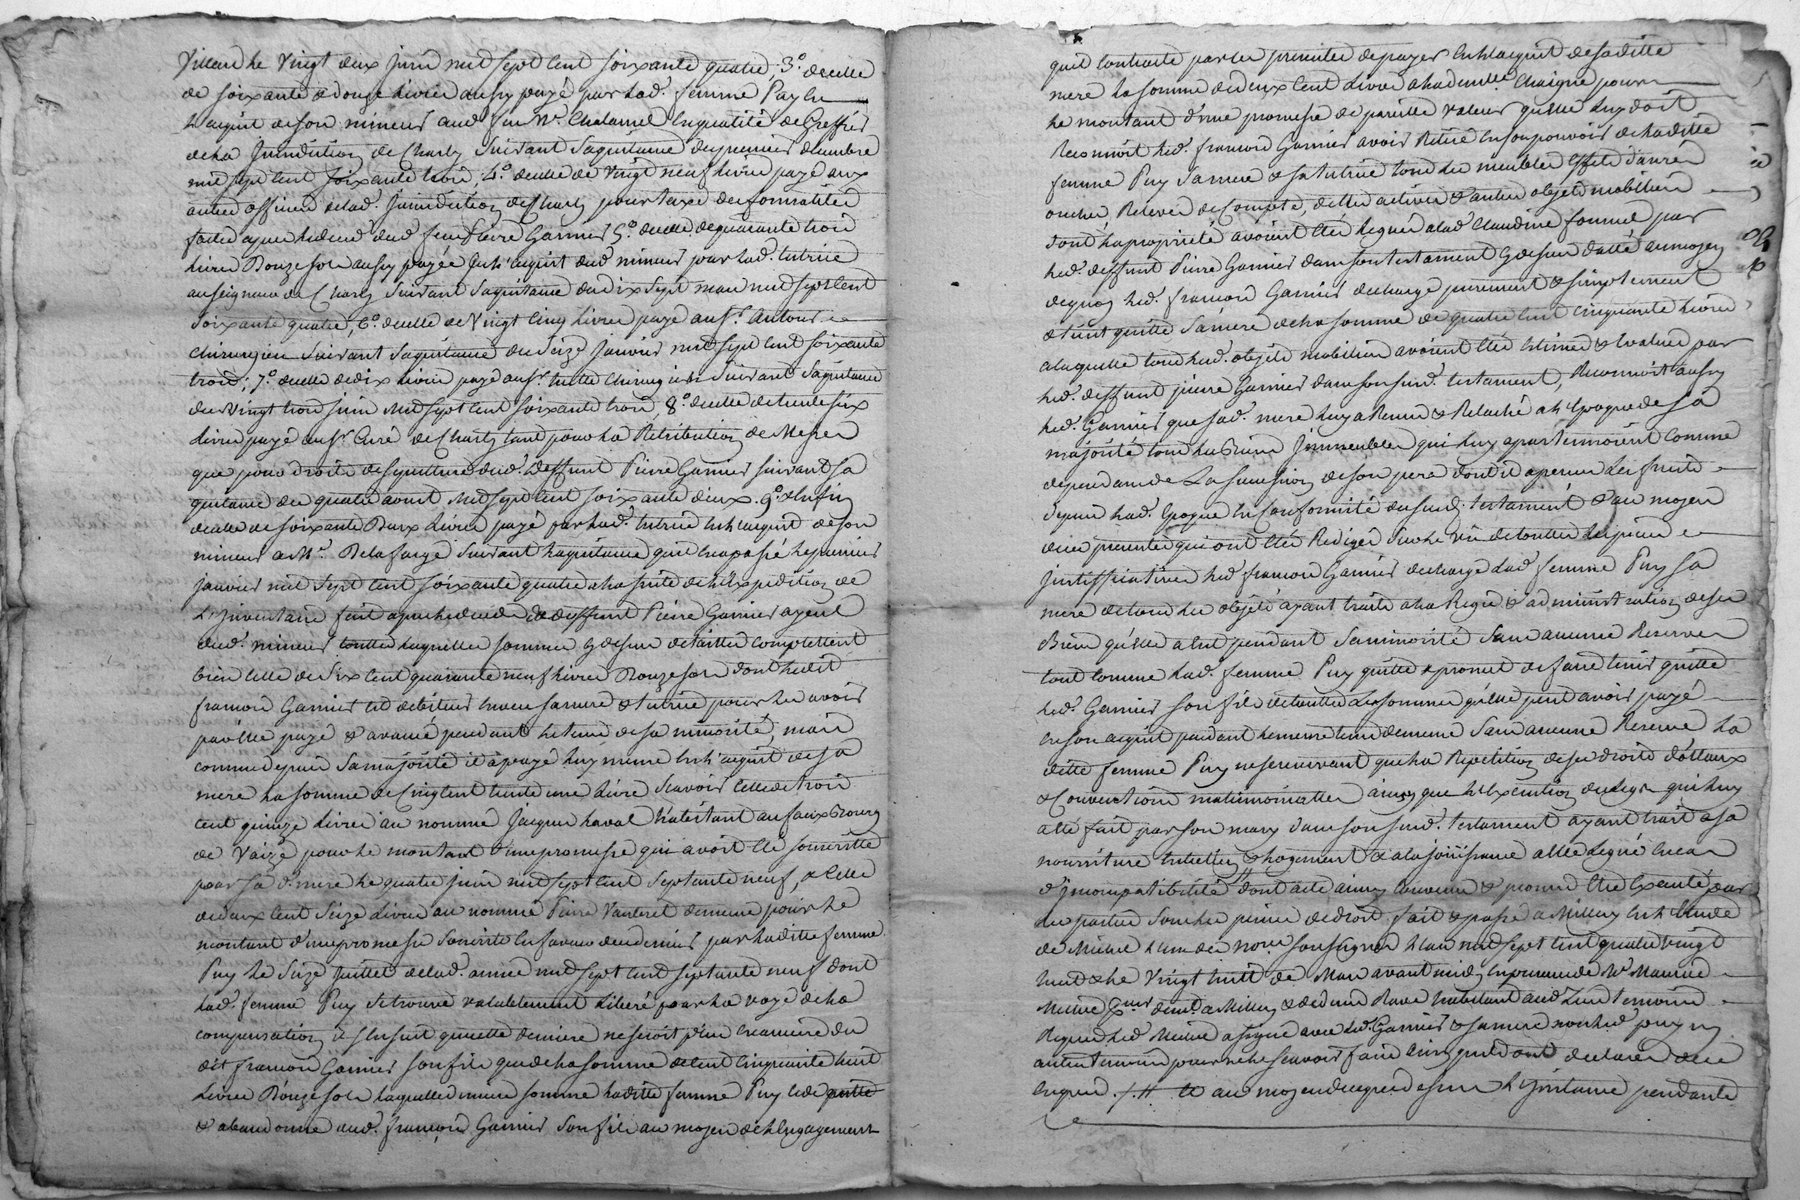 Villard le vingt deux juin mil sept cent soixante quatre; 3°. de celle
de soixante & douze livres aussy payé par lad. femme Puy
L'acquit de son mineur aud. feu Mr. Chatannel en qualité de Greffier
de la Juridiction de Charly suivant sa quittance du premier decembre
mil sept cent soixante trois, 4°. de celle de vingt neuf livres payé aux
autres officiers de lad. Juridiction de Charly pour taxe des formalités
faites apres le deces dud. feu Pierre Garnier 5°. de celle de quarante trois
livres Douze sols aussy payée à l'acquit dud. mineur par lad. tutrice
au seigneur de Charly suivant sa quittance du dix sept mai mil sept cent
soixante quatre, 6°. de celle de vingt cinq livres payé au Sr.
Chirurgien suivant sa quittance du seize janvier mil sept cent soixante
trois; 7°. de celle de dix livres payé au Sr. Chirurgien suivant sa quittance
du vingt trois juin mil sept cent soixante trois, 8°. de celle de trente six
livres payé au Sr. Curé de Charly tant pour la Retribution de Messes
que pour droits de sepulture dud. deffunt Pierre Garnier suivant sa
quittance du quatre aout mil sept cent soixante deux. 9°. & enfin
de celle de soixante Douze livres payé par lad. tutrice à l'acquit de son
mineur a Mr. Delafarge suivant la quittance qu'il en a passé le premier
janvier mil sept cent soixante quatre a la suite de l'Expedition de
L'Inventaire fait apres le deces de deffunt Pierre Garnier ayeul
dud. mineur toutes lesquelles sommes cy dessus detaillées complettent
bien celle de Six cent quarante neuf livres Douze sols dont ledit
françois Garnier est debiteur envers sa mere & tutrice pour les avoir
par elle payé & avancé pendant le tems de sa minorité, mais
comme depuis sa majorité il a payé luy meme à l'acquit de sa
mere la somme de Cinq cent trente une Livre Scavoir celle de trois
cent quinze livres au nommé Jacques Laval habitant au faux Bourg
de Vaize pour le montant d'une promesse qui avoit été souscritte
par sa d. mere le quatre juin mil sept cent septante neuf, & celle
de deux cent seize livres au nommé Pierre demeure pour le
montant d'une promesse souscritte en faveur de ce dernier par laditte femme
Puy le seize juillet de lad. année mil sept cent septante neuf dont
lad. femme Puy se trouve valablement Libéré par la voye de la
compensation il s'ensuit que cette derniere ne seroit plus creanciere du
dit françois Garnier son fils que de la somme de cent cinquante huit
livres Douze sols laquelle meme somme laditte femme Puy cede quitte
& abandonne aud. françois Garnier son fils au moyen de l'Engagement
qu'il contracte par les presentes de payer en l'acquit de saditte
mere la somme de deux cent livres a la demlle. Chaigne pour
le montant d'une promesse de pareille valeur qu'elle luy doit
Reconnoit led. françois Garnier avoir Retiré en son pouvoir de laditte
femme Puy sa mere & sa tutrice tous les meubles effets danrées
outre Relevé de Compte, dettes actives & autres objets mobiliers
dont la propriété avoient été leguée a lad. Claudine fournel par
led. deffunt Pierre Garnier dans son testament cy dessus datté au moyen
de quoy led. françois Garnier decharge purement & simplement
& tient quitte sa mere de la somme de quatre cent cinquante livres
a laquelle tous lesd. objets mobiliers avoient été estimés & evalués par
led. deffunt pierre Garnier dans son susd. testament, Reconnoit aussy
led. Garnier que sad. mere luy a Remis & Relaché a l'Epoque de sa
majorité tous les Biens Immeubles qui luy apartennoient comme
dependance de La succession de son pere dont il a perçu les fruits
depuis lad. Epoque en conformité du susd. testament & au moyen
des presentes qui ont été Redigées sur le vu de toutes les pieces
justifficatives led. françois Garnier decharge lad. femme Puy sa
mere de tous les objets ayant traits a la Regie & administration de ses
Biens qu'elle a eut pendant sa minorité Sans aucune Reserves
tout comme lad. femme Puy quitte & promet de faire tenir quitte
led. Garnier son fils de toutes les sommes qu'elle peut avoir payé
en son acquit pendant le meme tems de meme Sans aucune Reserve La
ditte femme Puy ne se reservant que la Repetition de ses droits dottaux
& Conventions matrimonialles ainsy que l'Execution du legs qui luy
a été fait par son mary dans son susd. testament ayant trait a sa
nourriture entretien & logement & a la jouissance a elle leguée en cas
d'Incompatibilité // dont acte ainsy convenu & promis être Exanté par
les parties sous les peines de droit, fait & passé a Millery en l'Etude
de Meure l'un des nores. soussignés l'an mil sept cent quatre vingt
huit & le vingt huit de Mars avant midy en presence de Mr. Maurice
Meure demt. a Millery & de d'une Rave habitant aud. Lieu temoins
Requis led. Meure a signé avec led. Garnier & sa mere non led. puy ny
autre temoin pour ne le scavoir faire ainsy qu'ils ont declarés de ce
enquis. /. // & au moyen de ce que dessus L'Instance pendante